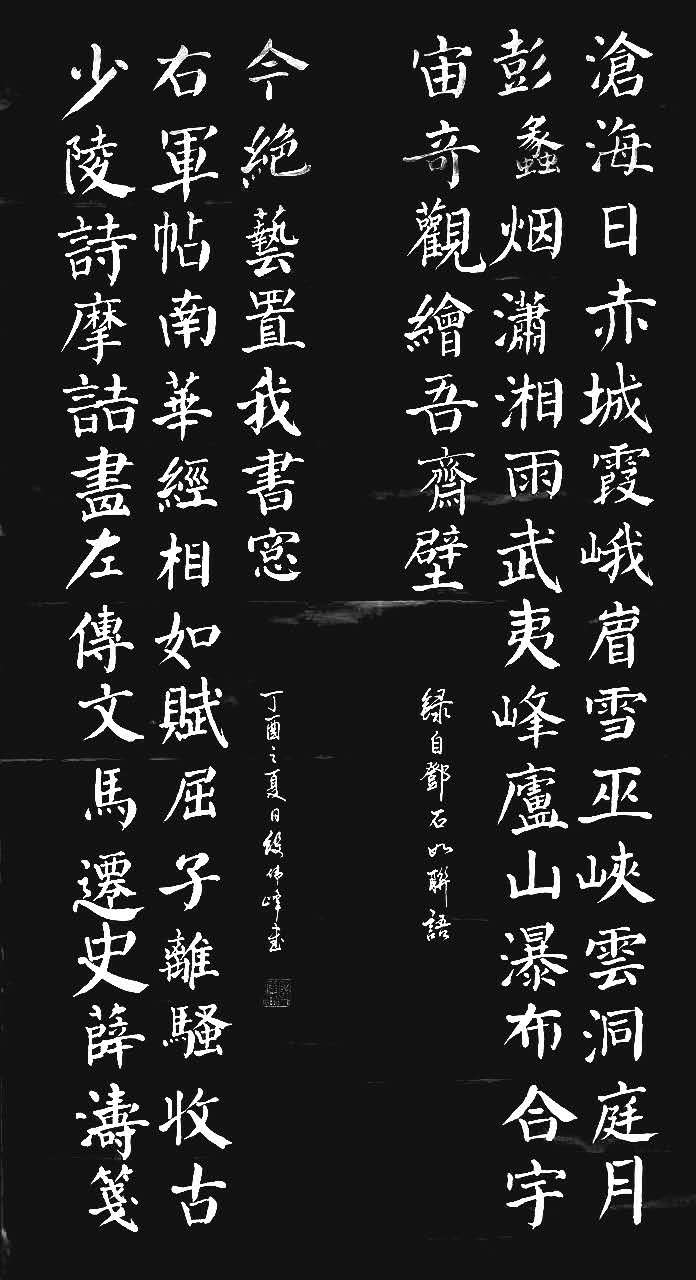 滄海日赤城霞峨眉雪巫峽雲洞庭月
彭蠡烟瀟湘雨武夷峰廬山瀑布合宇
宙奇觀繪吾齋壁
録自鄧石如聯語
少陵詩摩詰畫左傳文馬遷史薛濤箋
右軍帖南華經相如賦屈子離騷收古
今絕藝置我書窓
丁酉之夏日伟峰書